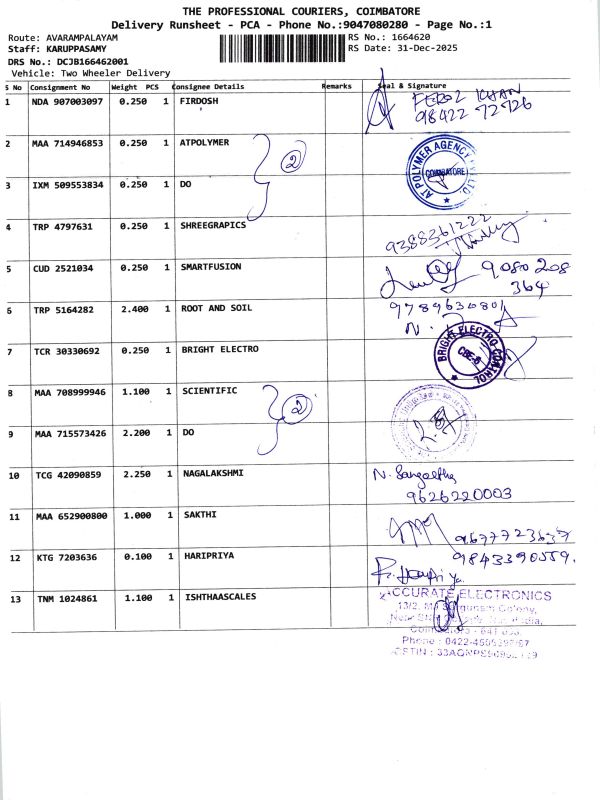 THE PROFESSIONAL COURIERS, COIMBATORE
Delivery Runsheet - PCA - Phone No.:9047080280 - Page No.:1
Route: AVARAMPALAYAM
RS No.: 1664620
Staff: KARUPPASAMY
RS Date: 31-Dec-2025
DRS No.: DCJB166462001
Vehicle: Two Wheeler Delivery
S No Consignment No Weight PCS Consignee Details Remarks Seal & Signature
1 NDA 907003097 0.250 1 FIRDOSH FEROZ KHAN
98422 72726
2 MAA 714946853 0.250 1 ATPOLYMER
2
AT POLYMER AGENCY
COIMBATORE
3 IXM 509553834 0.250 1 DO
4 TRP 4797631 0.250 1 SHREEGRAPICS
9388361222
5 CUD 2521034 0.250 1 SMARTFUSION
9080208
364
6 TRP 5164282 2.400 1 ROOT AND SOIL
9789630801
N.
7 TCR 30330692 0.250 1 BRIGHT ELECTRO
BRIGHT ELECTRO CONTROL
CBE-6
8 MAA 708999946 1.100 1 SCIENTIFIC
2
9 MAA 715573426 2.200 1 DO
10 TCG 42090859 2.250 1 NAGALAKSHMI
N. Sangeetha
9626220003
11 MAA 652900800 1.000 1 SAKTHI
9677723637
12 KTG 7203636 0.100 1 HARIPRIYA
9843390559.
P. Haripriya
13 TNM 1024861 1.100 1 ISHTHAASCALES
ACCURATE ELECTRONICS
13/2,
Colony,
Coimbatore - 641
Phone : 0422-
GSTIN :